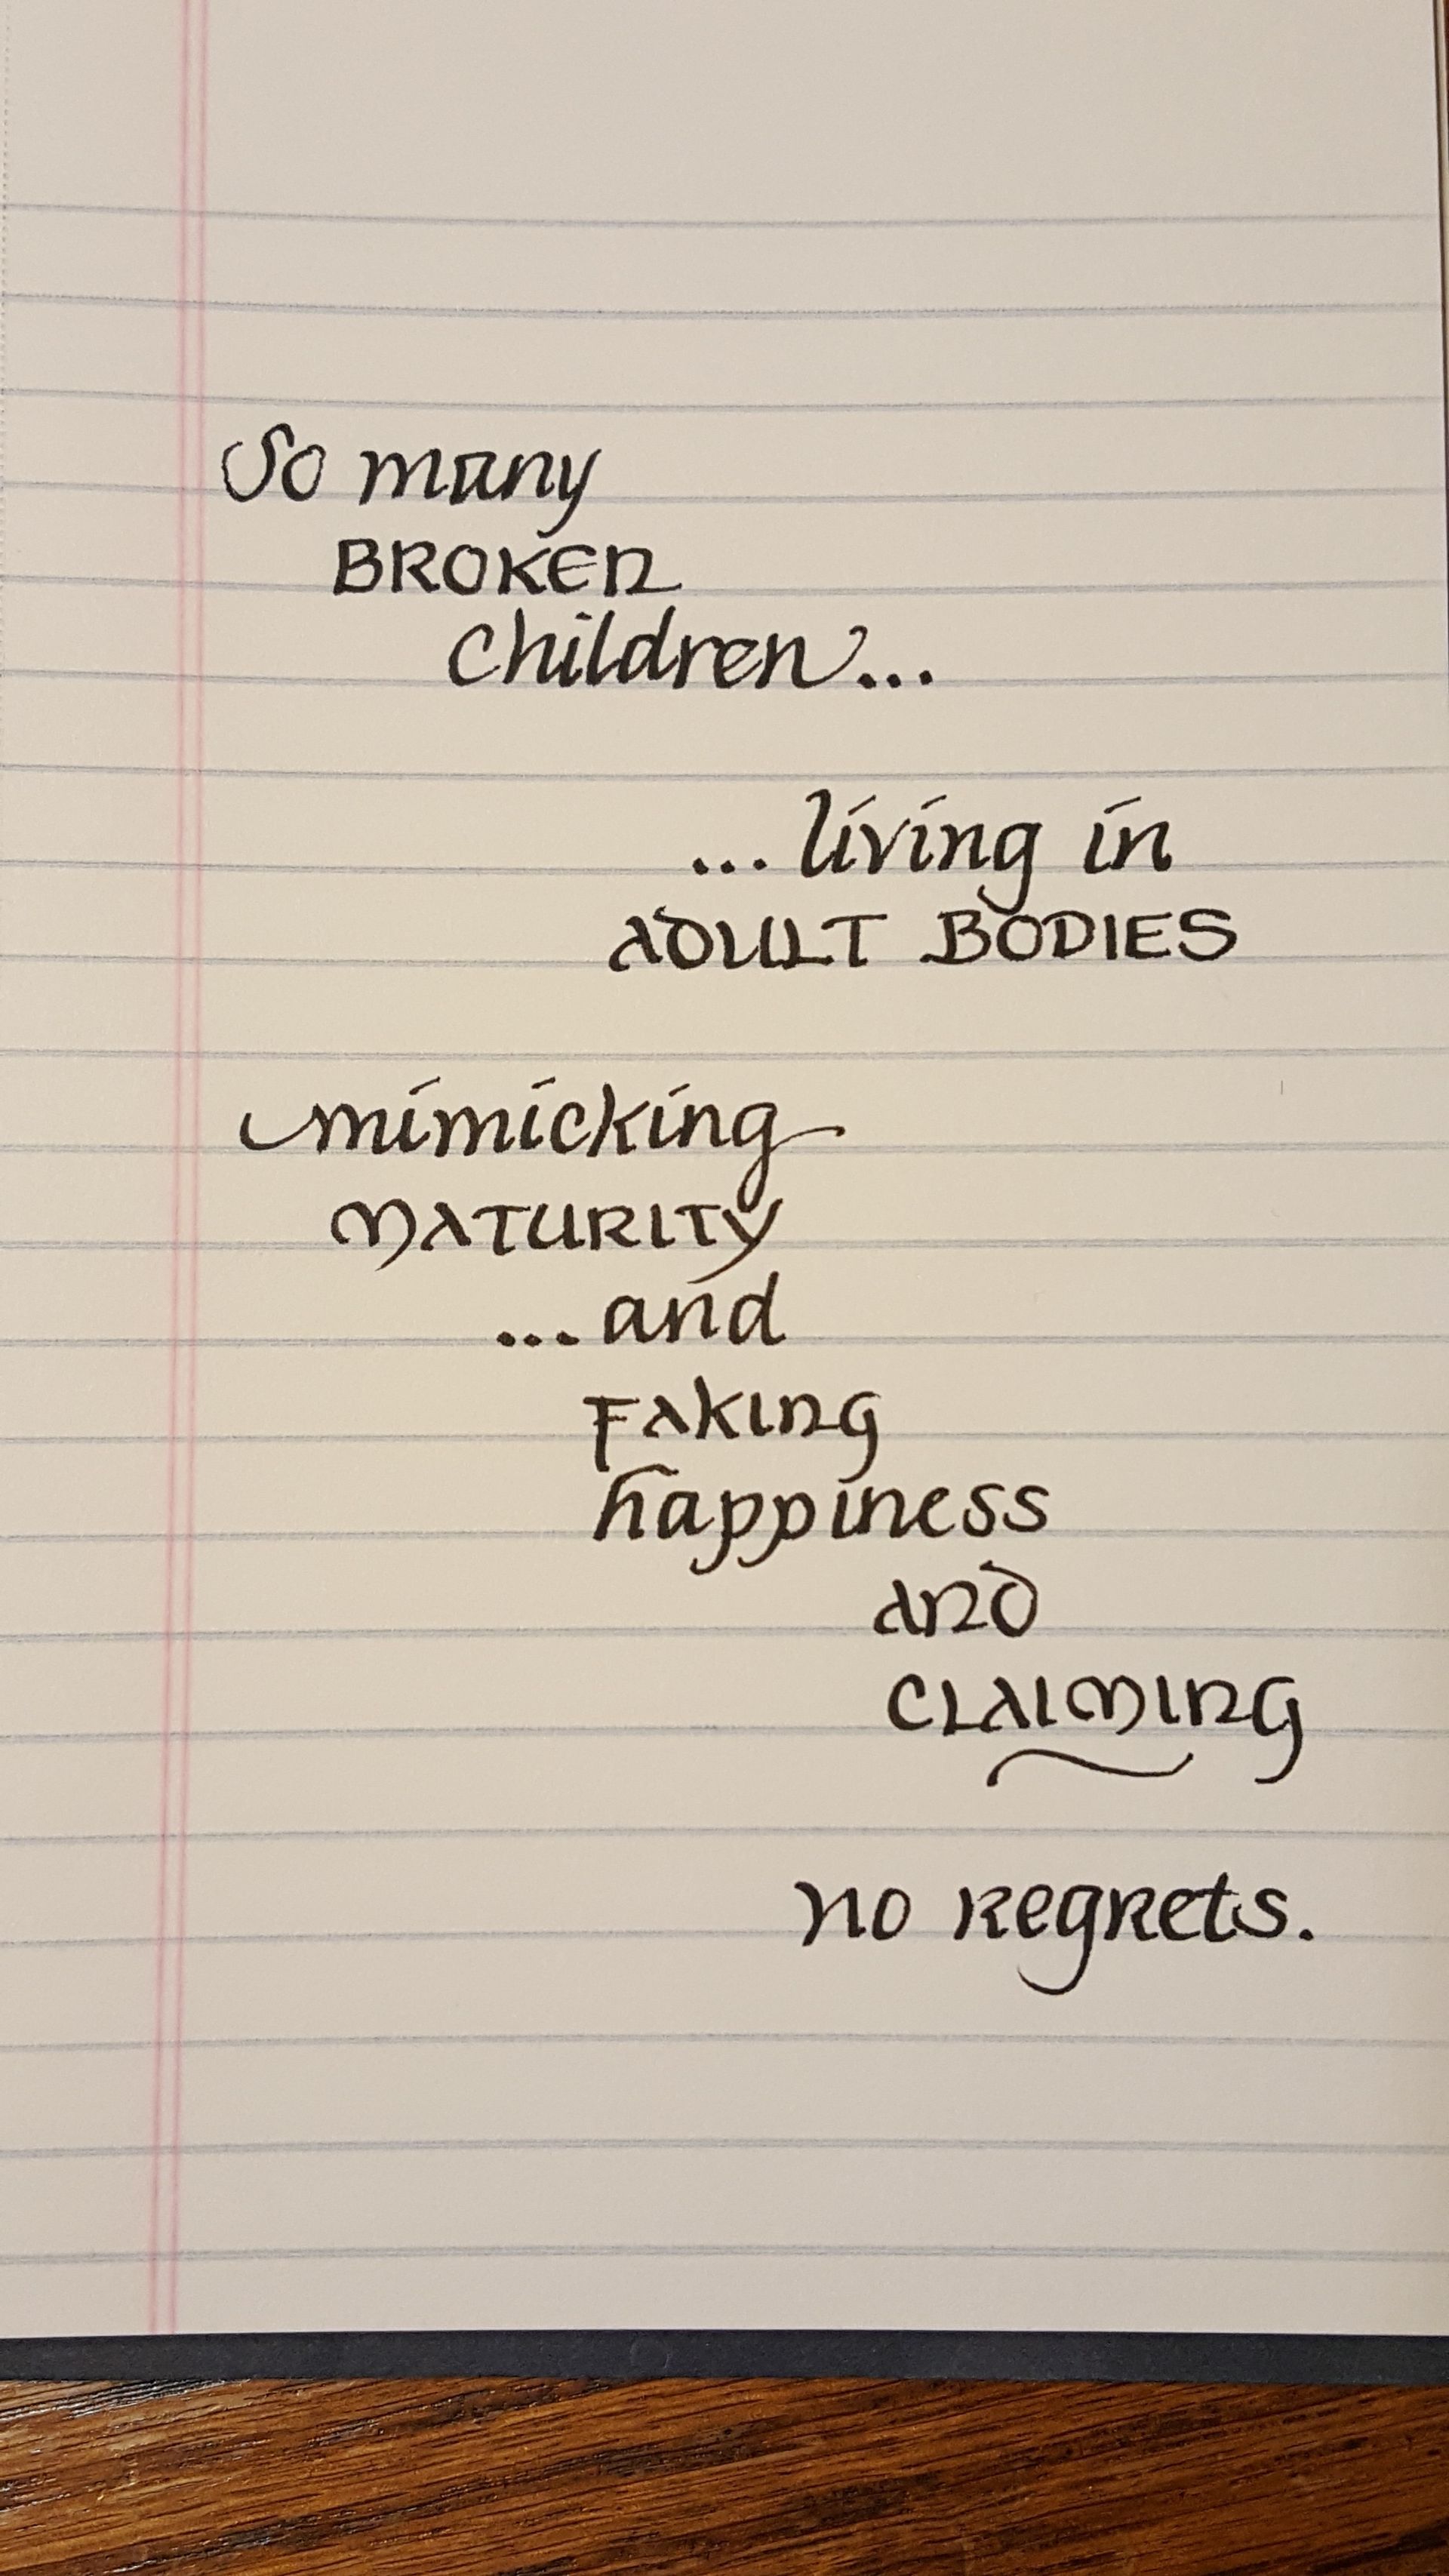 So many
BROKEN
children...
...living in
ADULT BODIES
mimicking
MATURITY
...and
FAKING
happiness
AND
CLAIMING
no regrets.